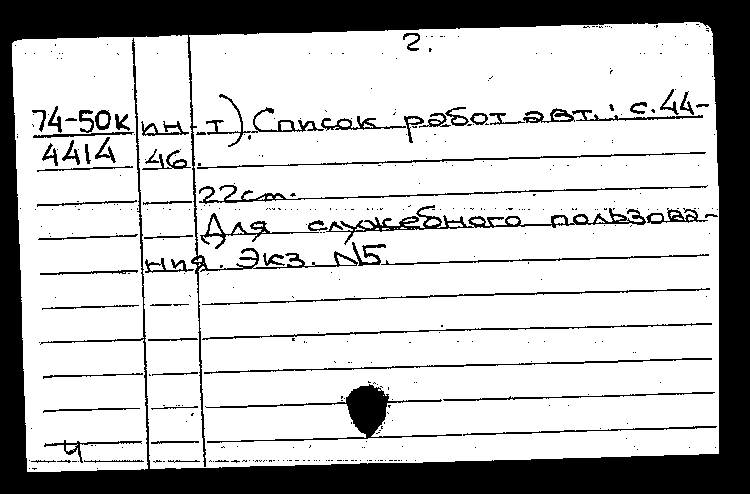 2.
74-50к ин-т). Список работ авт.: с.44-
4414 46.
22см.
Для служебного пользова-
ния. Экз. N5.
ч